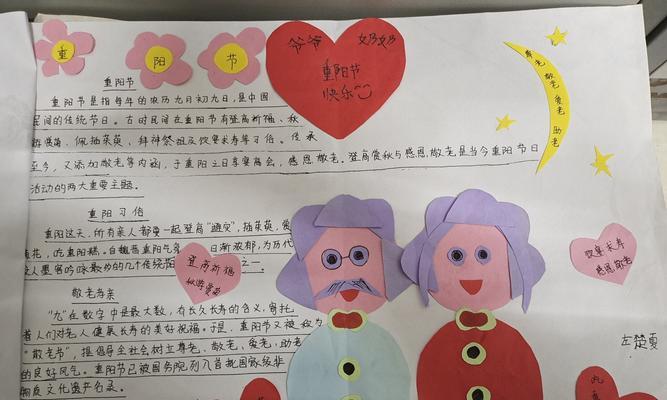 重
阳
节
爷爷 奶奶
重阳节
快乐
尊老
敬老
爱老
助老
重阳节
重阳节是指每年的农历九月初九日,是中国
民间的传统节日。古时民间在重阳节有登高祈福、秋
游赏菊、佩插茱萸、拜神祭祖及饮宴求寿等习俗。传承
至今,又添加敬老等内涵,于重阳之日享宴高会,感恩敬老。登高赏秋与感恩敬老是当今重阳节日
活动的两大重要主题。
重阳习俗
重阳这天,所有亲人都要一起登高“避灾”,插茱萸、赏
菊花,吃重阳糕。自魏晋重阳气 日渐浓郁,为历代
文人墨客吟咏最多的几个传统 之一。
登高祈福
秋游赏菊
饮宴求寿
感恩敬老
敬老寿亲
“九”在数字中是最大数,有长久长寿的含义,寄托
着人们对老人健康长寿的美好祝福。于是,重阳节又被称为
“敬老节”,提倡导全社会树立尊老、敬老、爱老、助老
的良好风气。重阳节已被国务院列入首批国家级非
物质文化遗产名录。
左楚夏